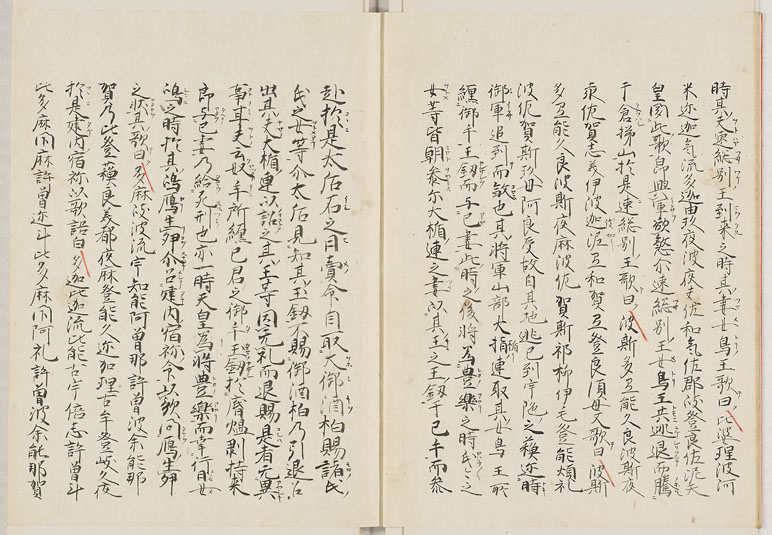 時其夫速総別王到来之時其妻女鳥王歌曰比婆理波阿
米迩迦気流多迦由玖夜波夜夫佐和気佐郎波登良佐泥天
皇聞此歌即興軍欲煞尓速総別王女鳥王共逃退而騰
于倉梯山於是速総別王歌曰波斯多弖能久良波斯夜
乘佐賀志美伊波迦泥弖和賀弖登良須母又歌曰波斯
多弖能久良波斯夜麻波佐賀斯祁柳伊毛登能煩礼
波佐賀斯玖母阿良受故自其地逃亡到宇陁之蘇迩時
御軍追到而煞也其将軍山部大楯連取其女鳥王所
纏御手玉釼而与己妻此時之後将為豊樂之時氏々之
女等皆朝参尓大楯連之妻以其王之玉釼于己手而参
赴於是太后石之日賣命自取大御酒柏賜諸氏
氏之女等尓太后見知其玉釼不賜御酒柏乃引退召
出其夫大楯連以詔之其王等因无礼而退賜是者无異
事耳夫之奴乎所纏己君之御手玉釼於膚熅剥持来
即与己妻乃給死刑也亦一時天皇為将豊樂而幸行日女
嶋之時於其嶋鴈生卵尓召建内宿祢命以歌問鴈生卵
之状其歌曰多麻岐波流宇知能阿曽那許曽波余能那
賀乃比登蘓良美都夜麻登能久迩加理古牟登岐久夜
於是建内宿祢以歌語曰多迦比迦流比能古宇倍志許曽斗
比多麻閇麻許曽迩斗比多麻閇阿礼許曽波余能那賀